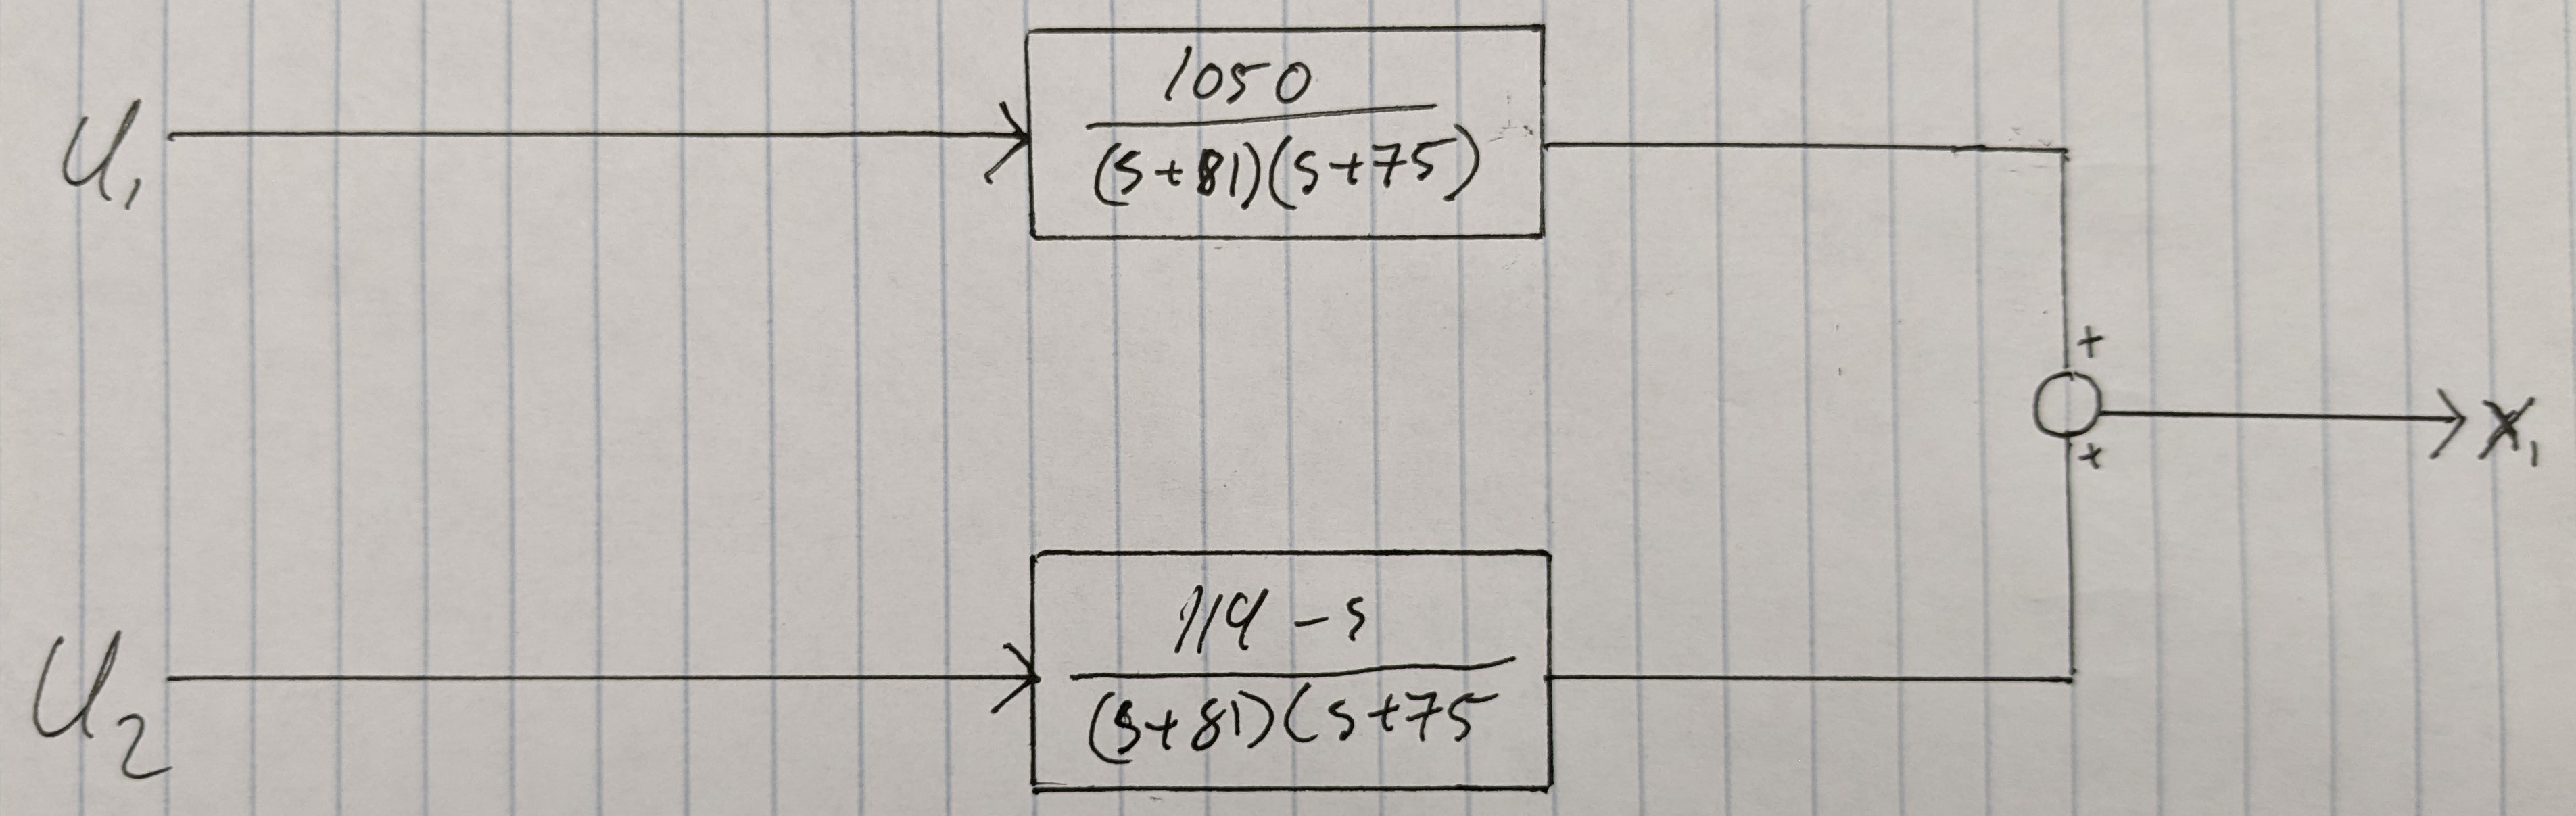 U₁
1050
(s+81)(s+75)
+
+
X₁
U₂
119-s
(s+81)(s+75